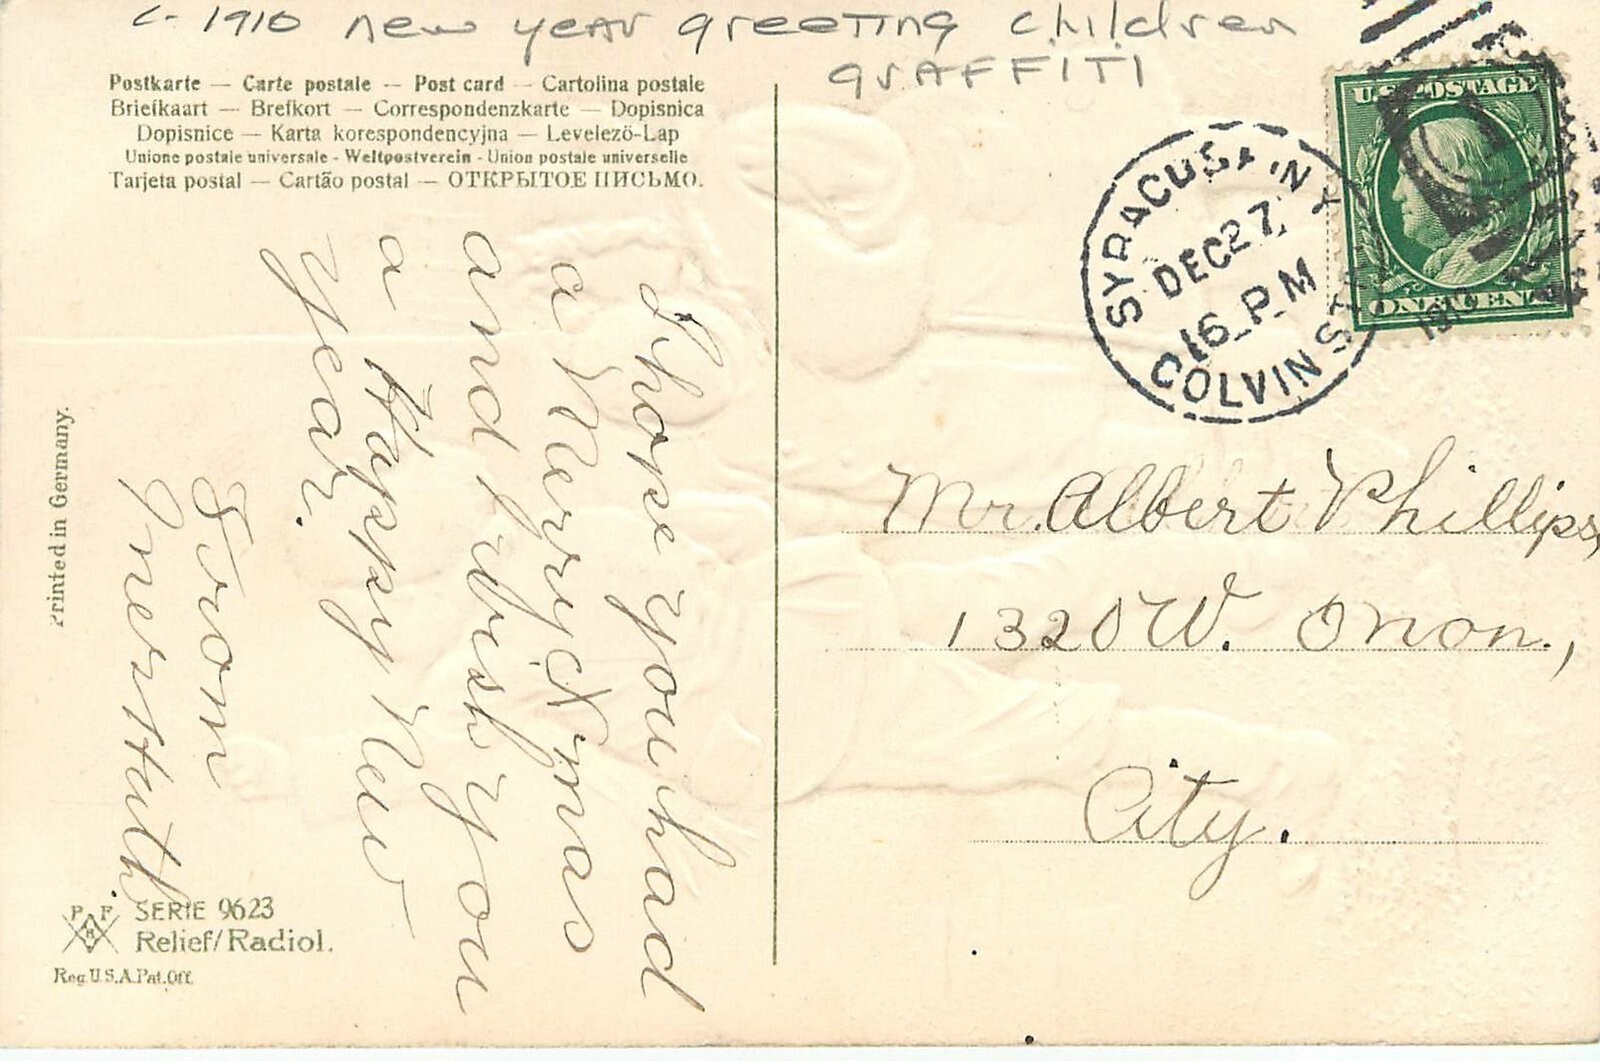 c. 1910 new year greeting children
graffiti
Postkarte — Carte postale — Post card — Cartolina postale
Briefkaart — Brefkort — Correspondenzkarte — Dopisnica
Dopisnice — Karta korespondencyjna — Levelező-Lap
Unione postale universale - Weltpostverein - Union postale universelle
Tarjeta postal — Cartão postal — ОТКРЫТОЕ ПИСЬМО.
U.S. POSTAGE
ONE CENT
SYRACUSE, N.Y.
DEC 27
6-PM
COLVIN ST.
I hope you had
a Merry Xmas
and wish you
a Happy New
year.
From
Mr. Albert Phillips,
1320 W. Onon.,
City.
Printed in Germany.
P F
B
SERIE 9623
Relief/Radiol.
Reg. U.S.A. Pat. Off.